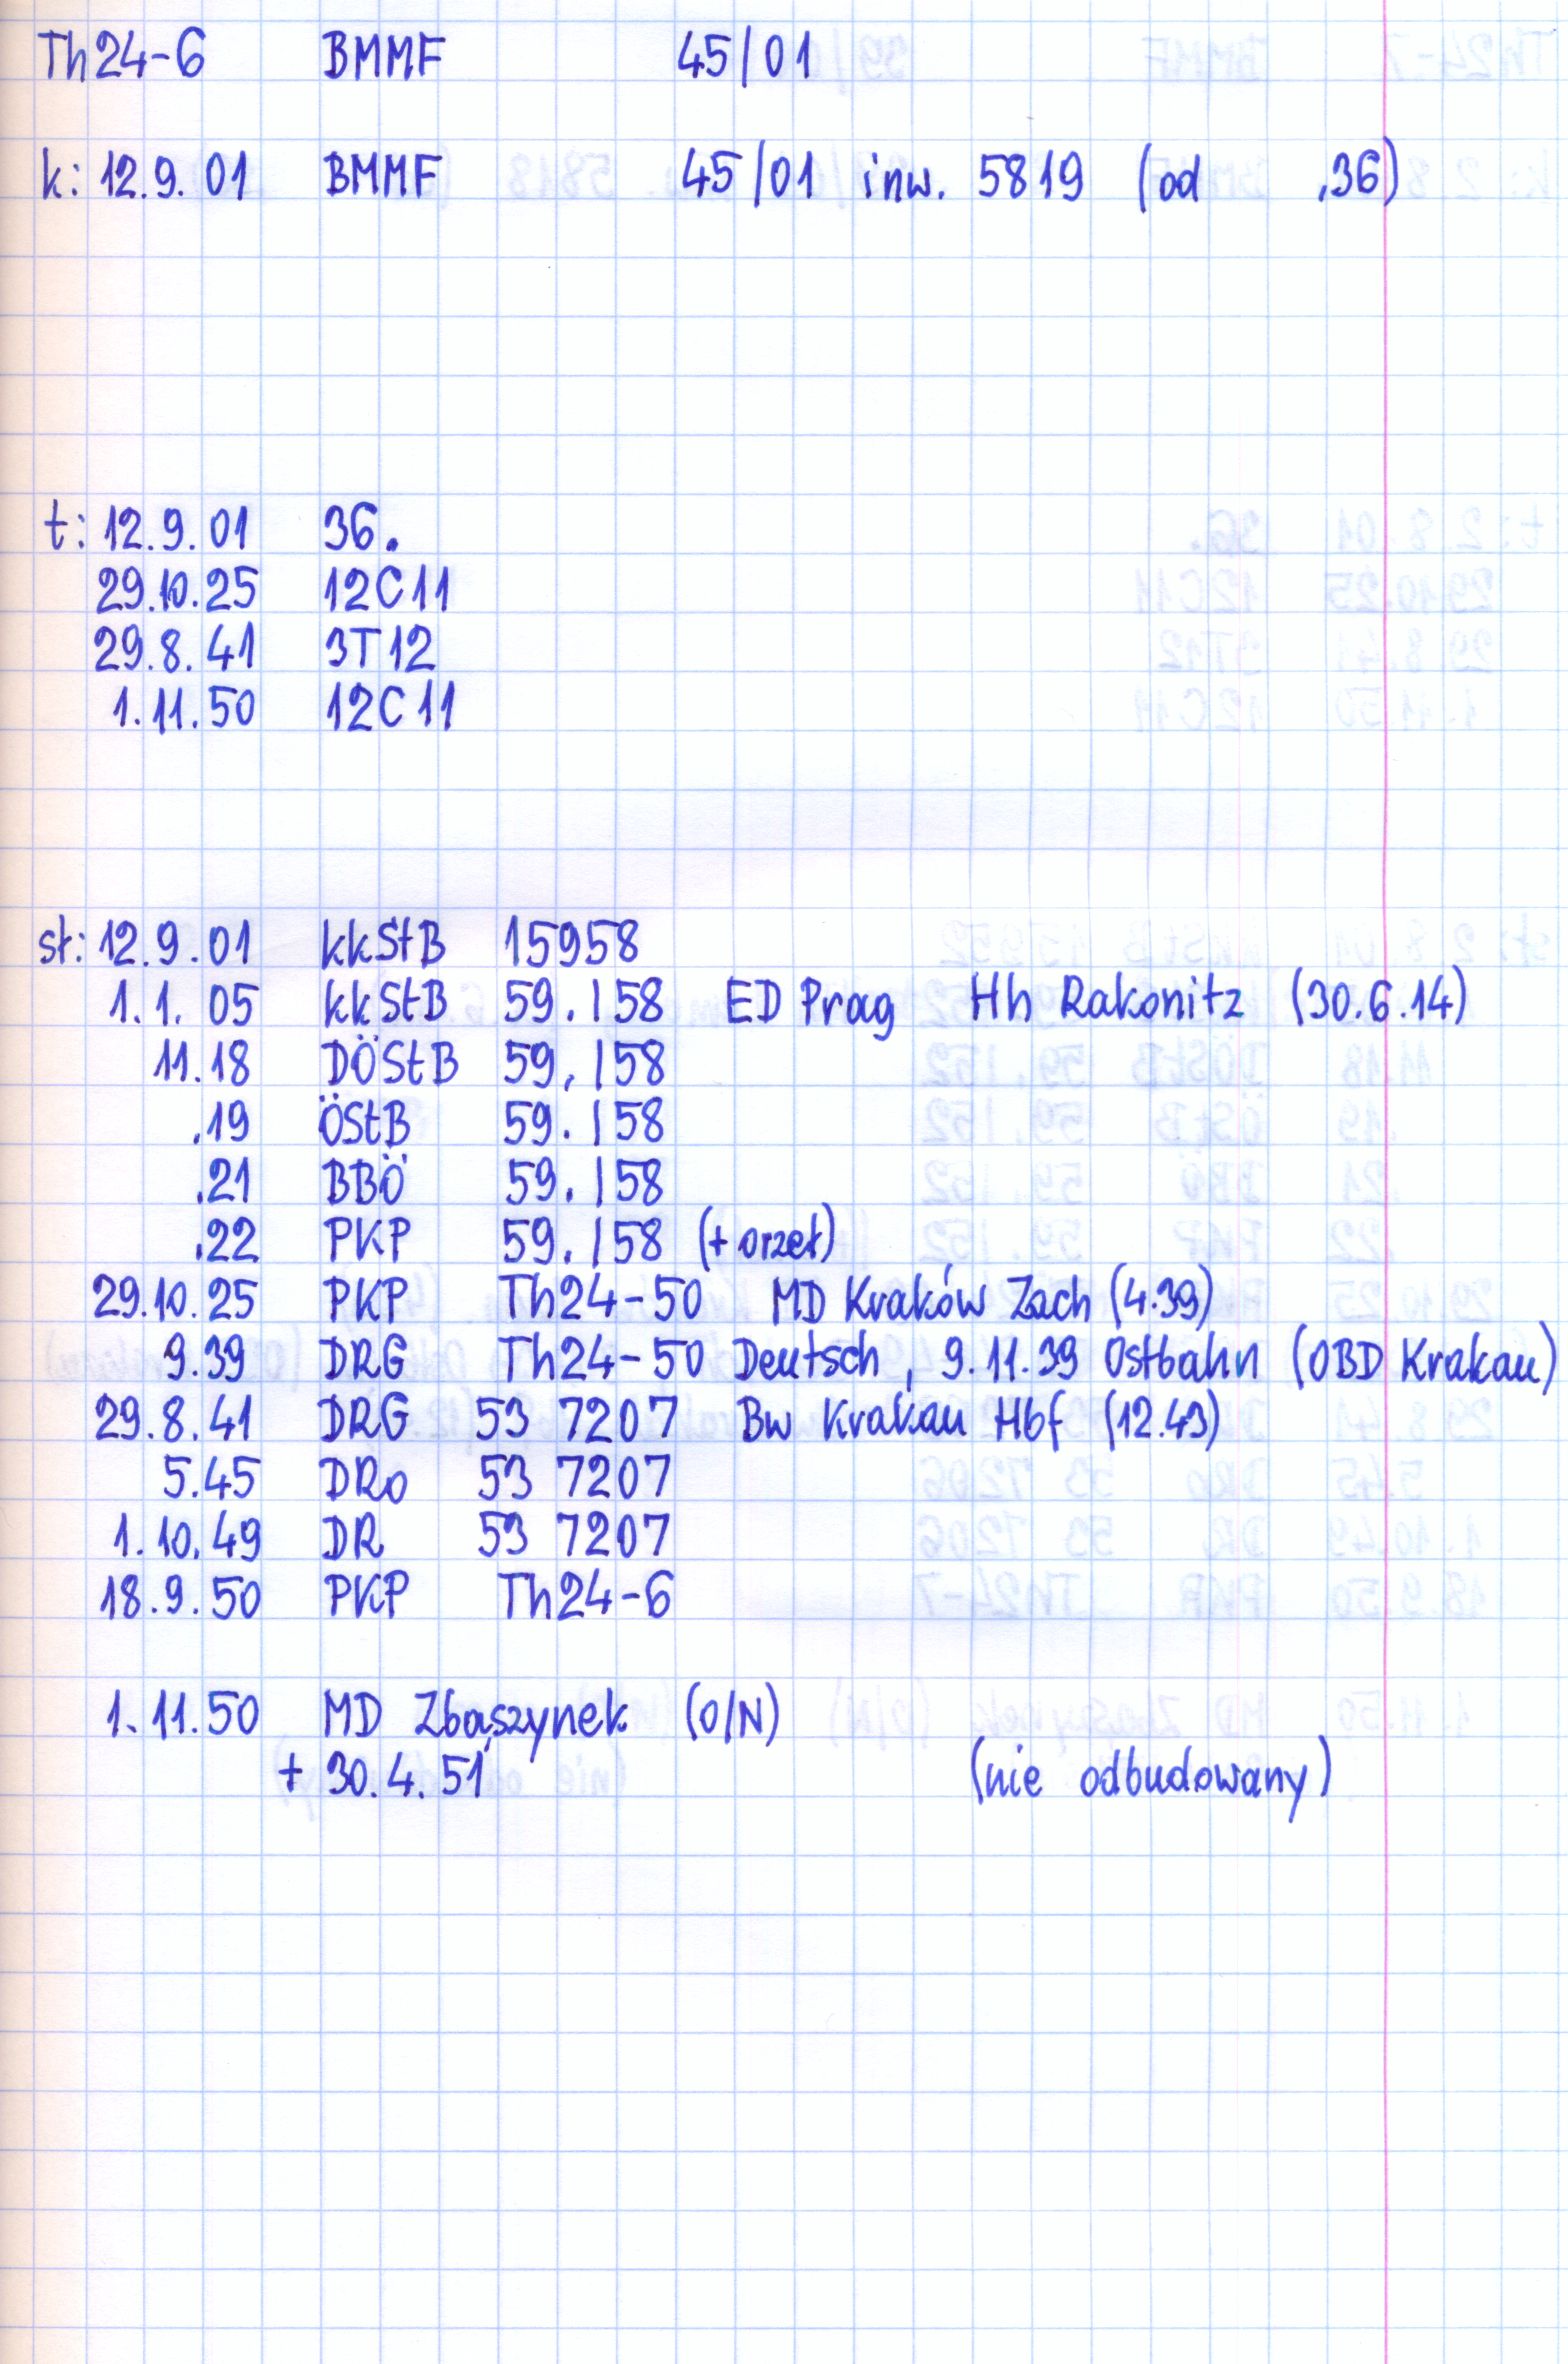 Th24-6 BMMF 45/01
k: 12.9.01 BMMF 45/01 inw. 5819 (od .36)
t: 12.9.01 36.
29.10.25 12C11
29.8.41 3T12
1.11.50 12C11
st: 12.9.01 kkStB 15958
1.1.05 kkStB 59.158 ED Prag Hh Rakonitz (30.6.14)
11.18 DÖStB 59.158
.19 ÖStB 59.158
.21 BBÖ 59.158
.22 PKP 59.158 (+ orzeł)
29.10.25 PKP Th24-50 MD Kraków Zach (4.39)
9.39 DRG Th24-50 Deutsch, 9.11.39 Ostbahn (OBD Krakau)
29.8.41 DRG 53 7207 Bw Krakau Hbf (12.43)
5.45 DRo 53 7207
1.10.49 DR 53 7207
18.9.50 PKP Th24-6
1.11.50 MD Zbąszynek (O/N)
+ 30.4.51 (nie odbudowany)